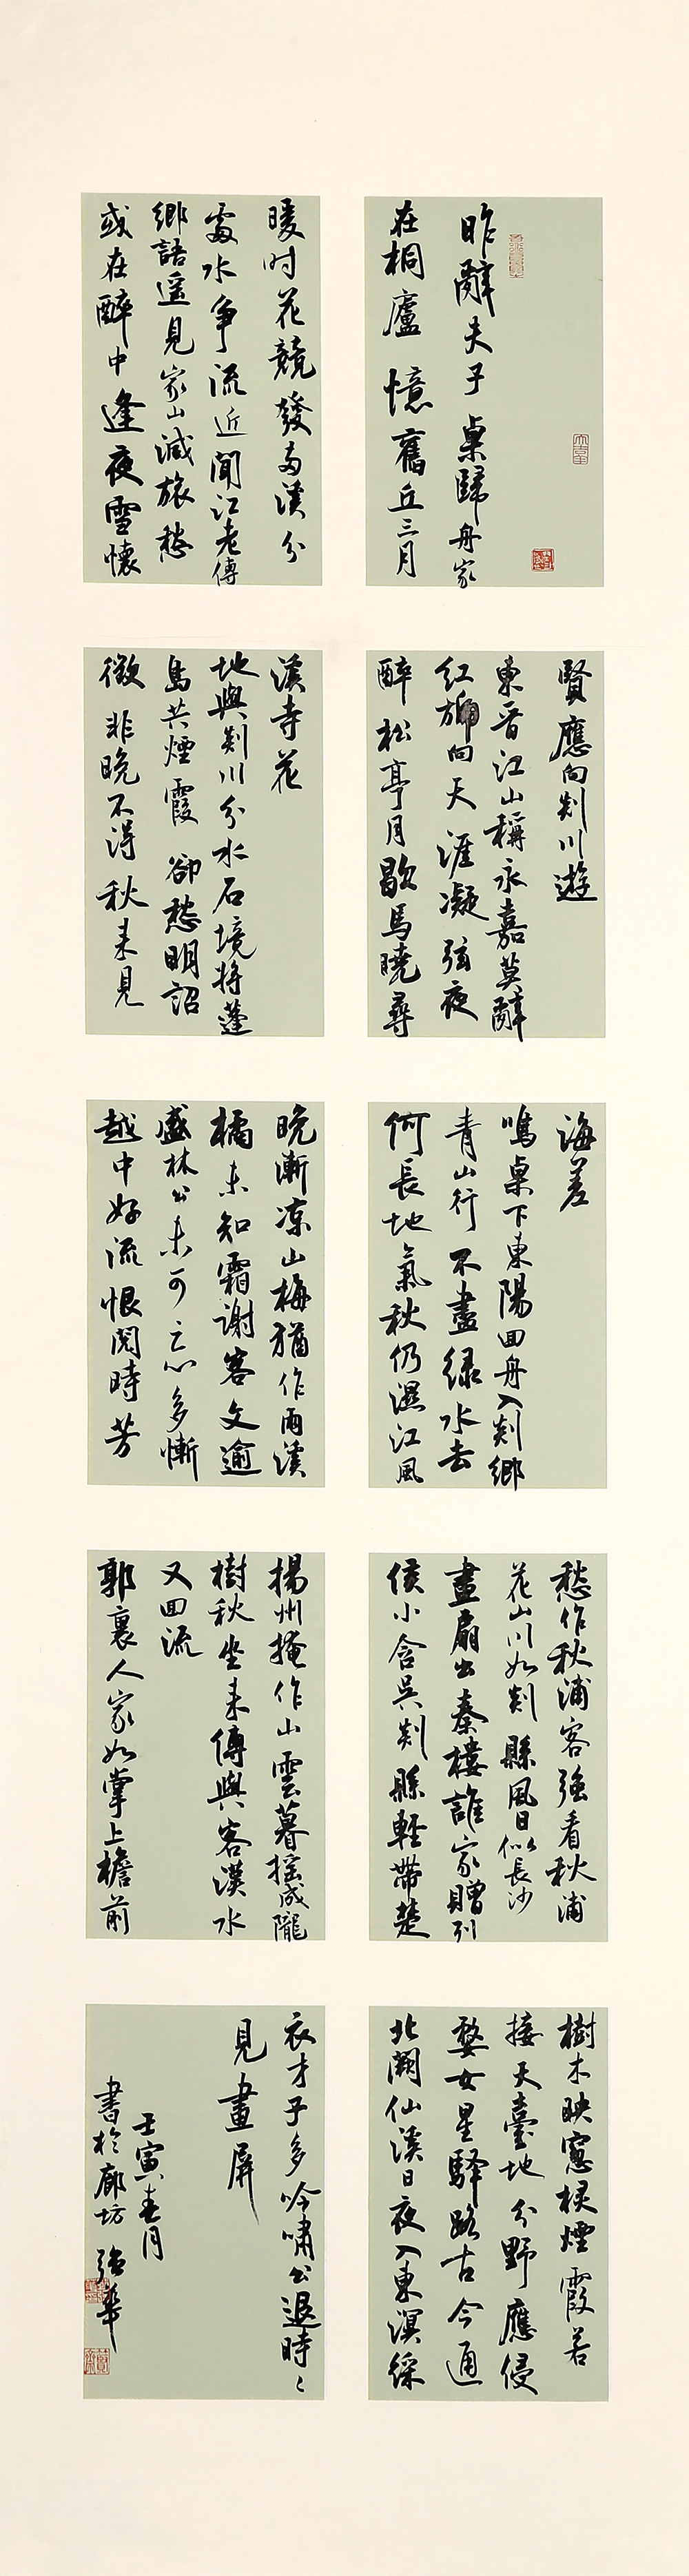 昨辭夫子棹歸舟家
在桐廬憶舊丘三月
暖时花競發兩溪分
處水争流近聞江老傳
鄉語遥見家山減旅愁
或在醉中逢夜雪懷
賢應向剡川遊
東晉江山稱永嘉莫辭
红旆向天涯凝弦夜
醉松亭月歇馬曉尋
溪寺花
地與剡川分水石境将蓬
島共煙霞卻愁明詔
徵非晚不得秋来見
海差
鳴棹下東陽回舟入剡鄉
青山行不盡绿水去
何長地氣秋仍濕江風
晚漸凉山梅猶作雨溪
橘未知霜謝客文逾
盛林公未可亡心多慚
越中好流恨閲時芳
愁作秋浦客強看秋浦
花山川如剡縣風日似長沙
畫扇出秦樓誰家贈列
侯小含吴剡縣輕帶楚
揚州掩作山雲暮摇成隴
樹秋坐来傳與客漢水
又回流
郭裏人家如掌上檐前
樹木映窻欞煙霞若
接天臺地分野應侵
婺女星驛路古今通
北闕仙溪日夜入東溟綵
衣才子多吟嘯公退時〻
見畫屏
壬寅春月
書於廊坊 強華